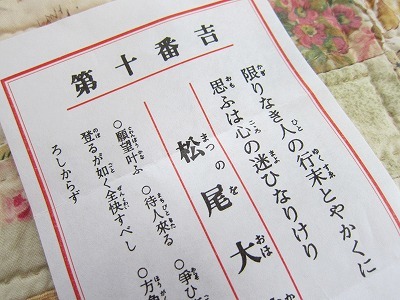 第十番吉
限りなき人の行末とやかくに
思ふは心の迷ひなりけり
松の尾大
○願望叶ふ ○待人來る ○争ひ
登るが如く全快すべし ○方角
ろしからず